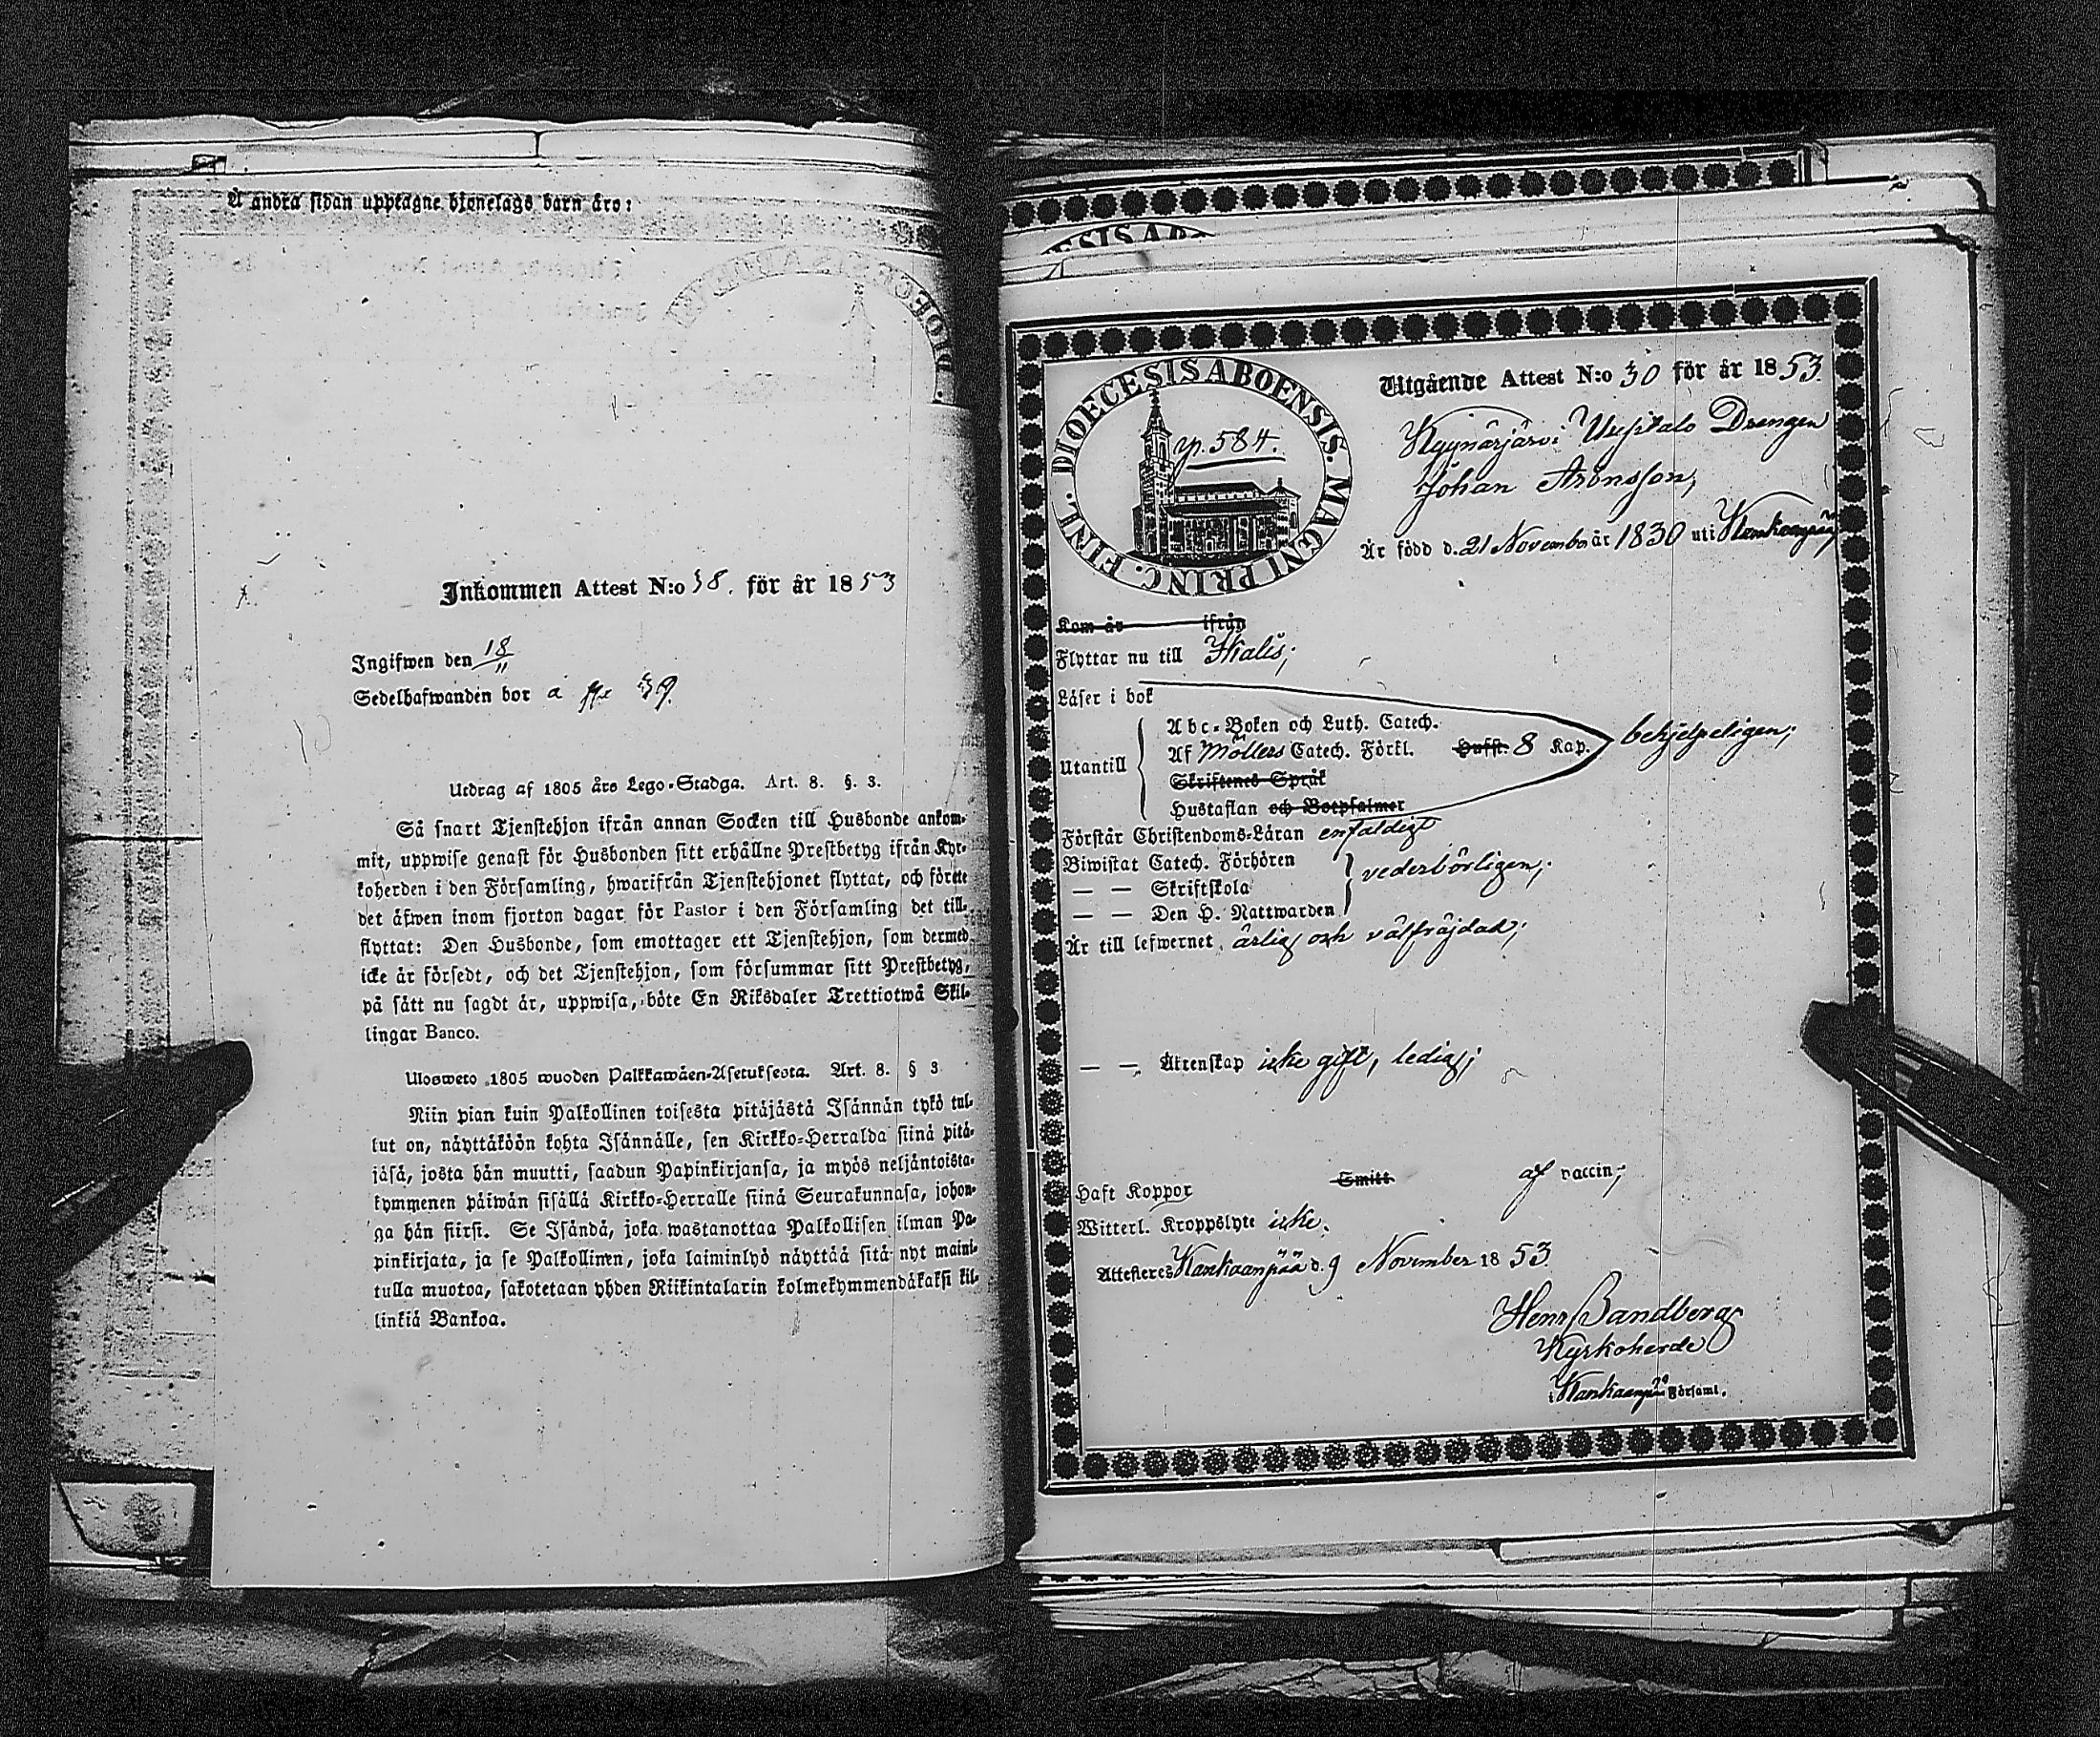 Å andra sidan upptagne hjonelags barn äro:
Inkommen Attest N:o 38. för år 1853
Ingifwen den 18/11
Sedelhafwanden bor å
Utdrag af 1805 års Lego-Stadga. Art. 8. §. 3.
Så snart Tjenstehjon ifrån annan Socken till Husbonde ankom-
mit, uppwise genast för Husbonden sitt erhållne Prestbetyg ifrån Kyr-
koherden i den Församling, hwarifrån Tjenstehjonet flyttat, och förete
det äfwen inom fjorton dagar för Pastor i den Församling det till-
flyttat: Den Husbonde, som emottager ett Tjenstehjon, som dermed
icke är försedt, och det Tjenstehjon, som försummar sitt Prestbetyg,
på sätt nu sagdt är, uppwisa, böte En Riksdaler Trettiotwå Skil-
lingar Banco.
Ulosweto 1805 wuoden Palkkawäen-Asetuksesta. Art. 8. § 3
Niin pian kuin Palkollinen toisesta pitäjästä Isännän tykö tul-
lut on, näyttäköön kohta Isännälle, sen Kirkko-Herralda siinä pitä-
jäsä, josta hän muutti, saadun Papinkirjansa, ja myös neljäntoista-
kymmenen päiwän sisällä Kirkko-Herralle siinä Seurakunnasa, johon-
ga hän siirsi. Se Isändä, joka wastanottaa Palkollisen ilman Pa-
pinkirjata, ja se Palkollinen, joka laiminlyö näyttää sitä nyt maini-
tulla muotoa, sakotetaan yhden Riikintalarin kolmekymmendäkaksi kil-
linkiä Bankoa.
ESIS AB
DIOECESIS ABOENSIS. MAGNI PRINC. FINL.
p. 584.
Utgående Attest N:o 30 för år 1853.
Kyynärjärvi Uusitalo Drengen
Johan Aronsson,
Är född d. 21 November år 1830 uti Kankaanpää
Kom år ifrån
Flyttar nu till Ikalis;
Läser i bok
Utantill
Abc-Boken och Luth. Catech.
Af Möllers Catech. Förkl. Hufst. 8 Kap. behjelpeligen;
Skriftenes Språk
Hustaflan och Botpsalmer
Förstår Christendoms-Läran enfaldigt
Biwistat Catech. Förhören
— — Skriftskola vederbörligen;
— — Den H. Nattwarden
Är till lefwernet ärlig och välfräjdad;
— — Äktenskap icke gift, ledig;
Haft Koppor Smitt af vaccin;
Witterl. Kroppslyte icke.
Attesteres Kankaanpää d. 9 November 1853.
Henr Sandberg
Kyrkoherde
i Kankaanpää Församl.